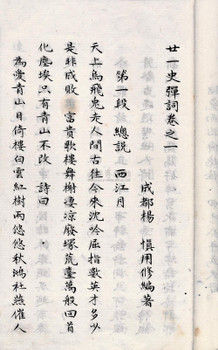 廿一史彈詞卷之一
成都楊 慎用修編著
第一段 總說 西江月
天上烏飛兔走人間古往今來沈吟屈指數英才多少
是非成敗 富貴歌樓舞榭凄涼廢塚荒臺萬般回首
化塵埃只有青山不改 詩曰
為愛青山日倚樓白雲紅樹兩悠悠秋鴻社燕催人